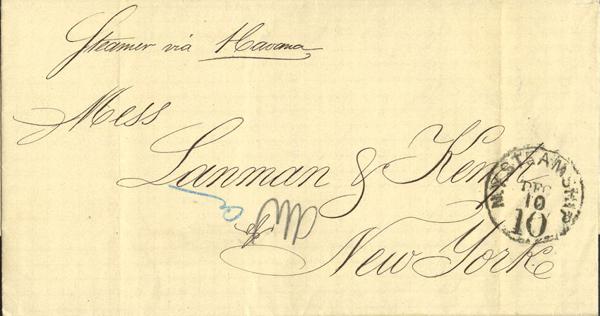 Steamer via Havana
Mess
Lanman & Kemp
New York
N.Y. STEAMSHIP
DEC
10
10